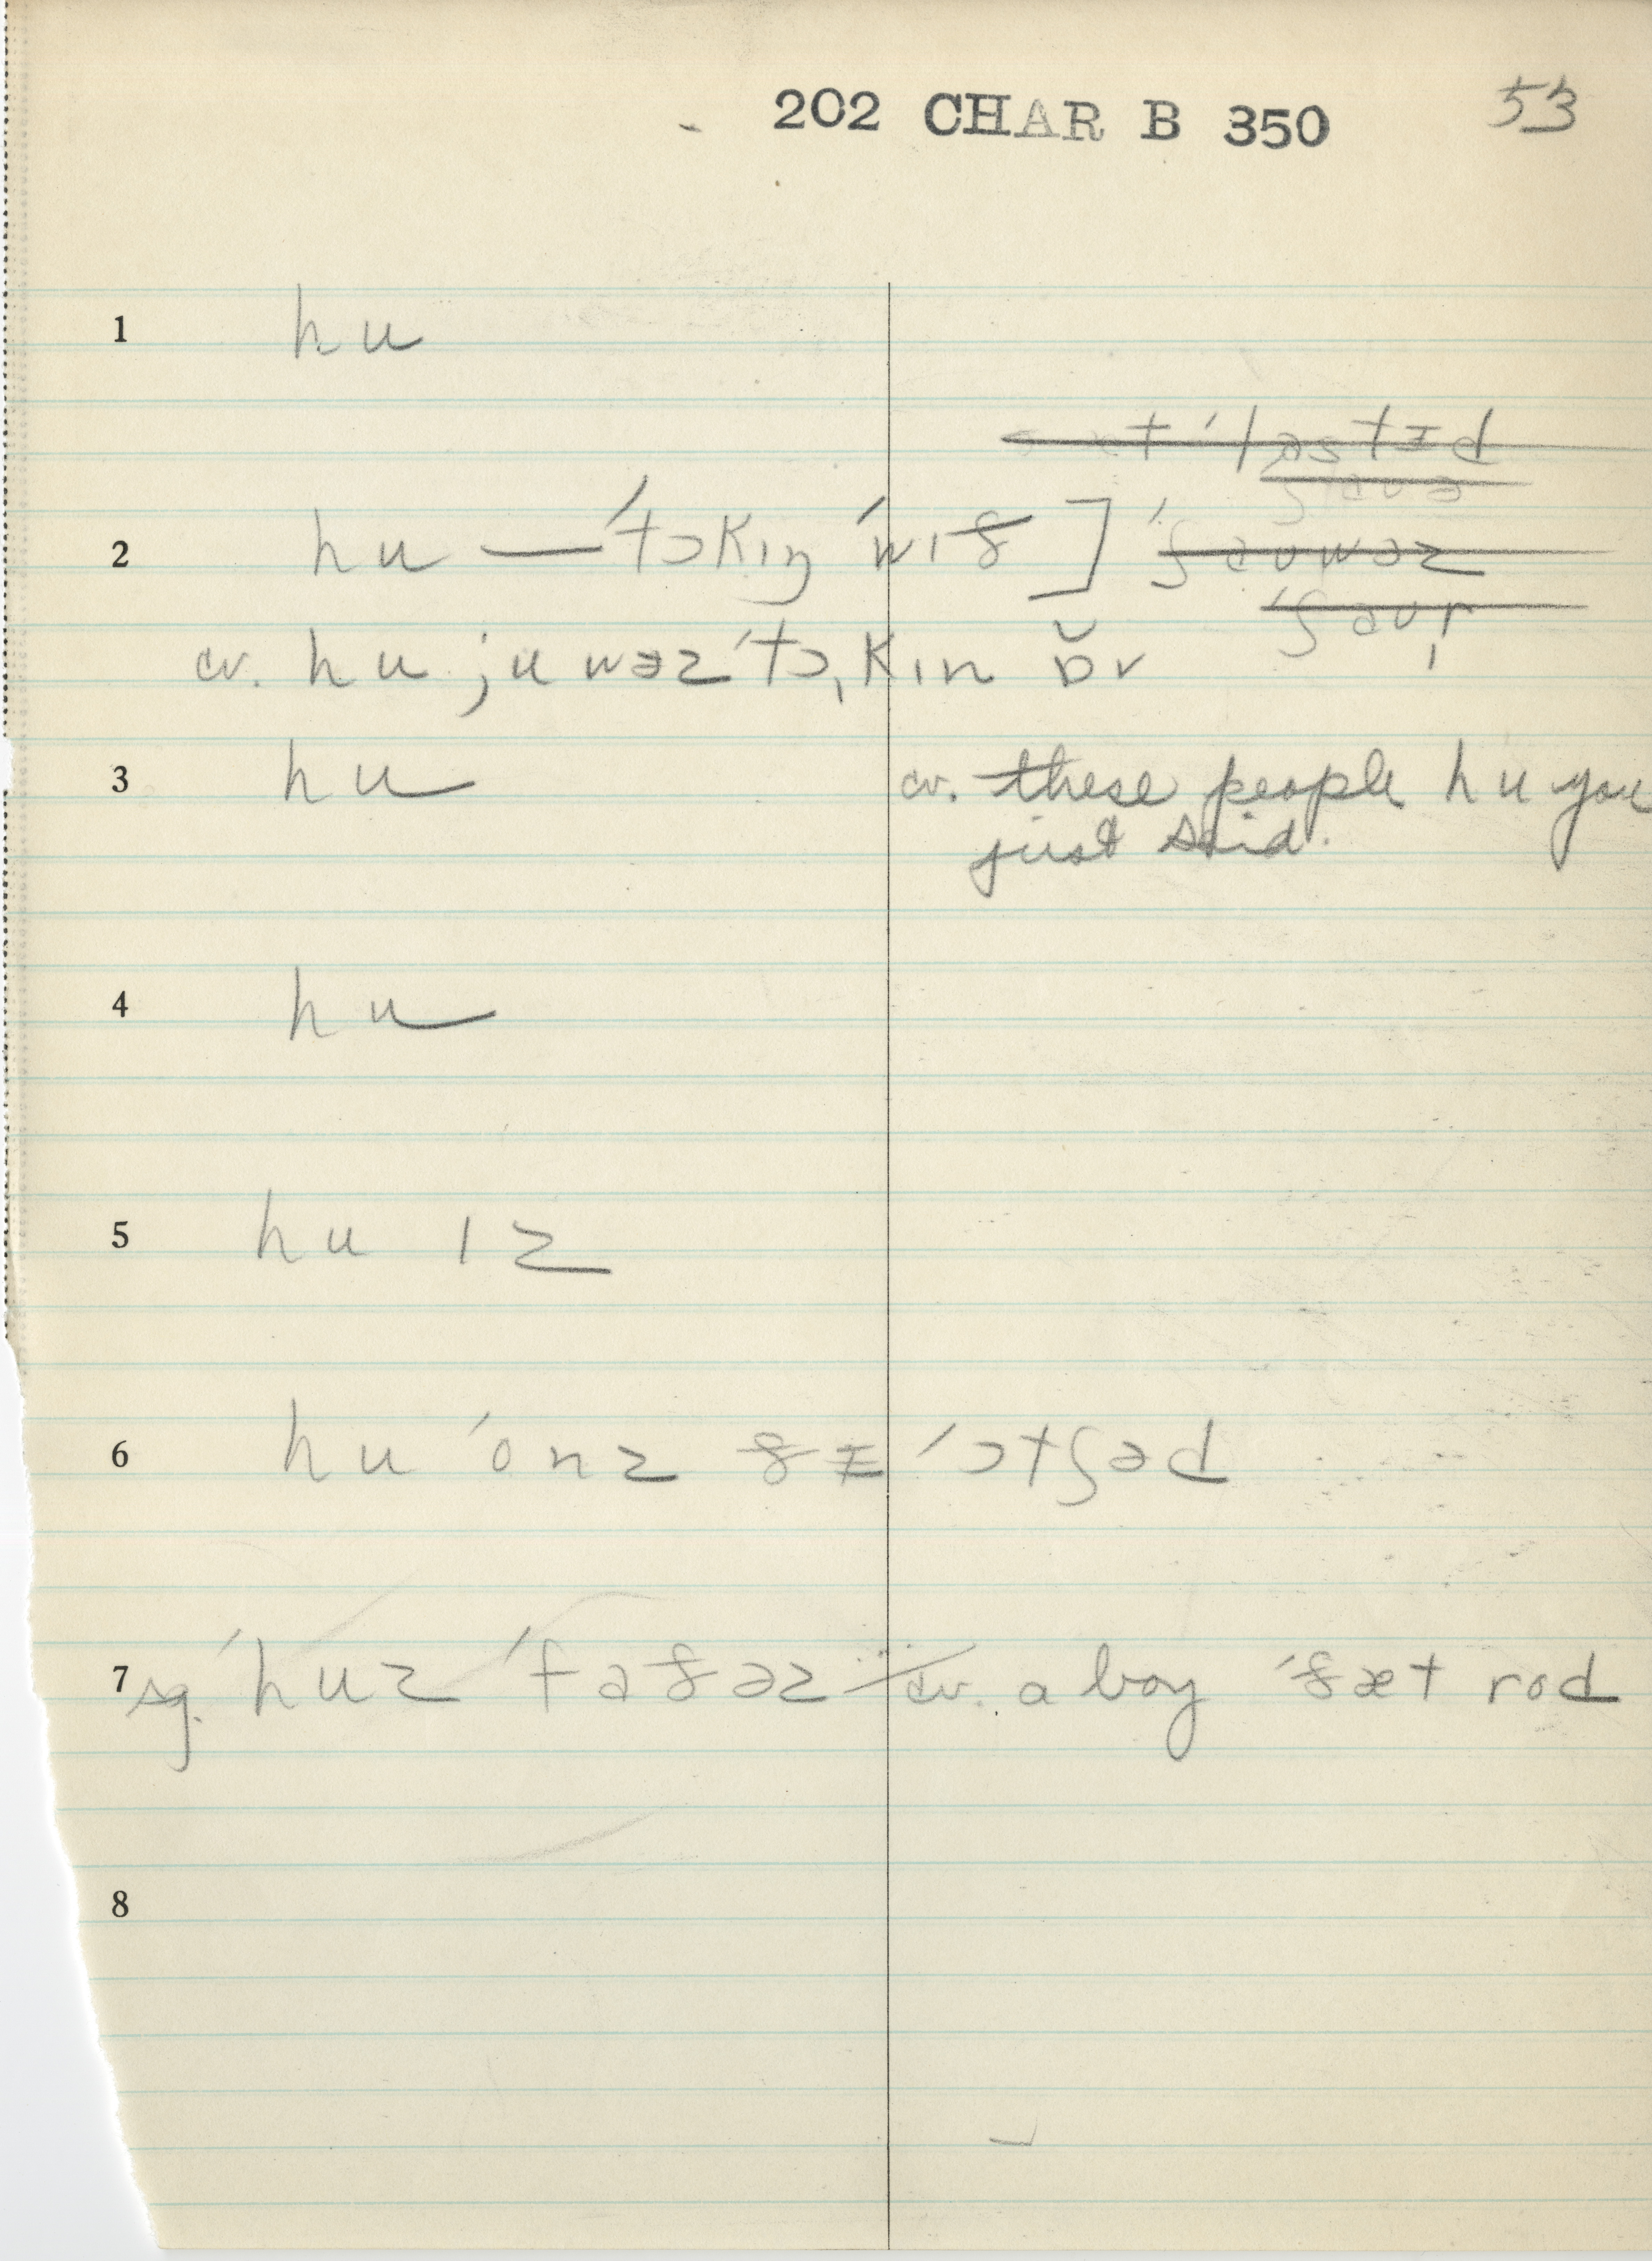 202 CHAR B 350 53
1 hu
ˈlastɪd
2 hu — ˈtɔkɪŋ ˈwɪð ] ˈʃaʊwəz
ˈʃaʊr
cv. hu ju wəz ˈtɔˌkɪn ɒ̆v
3 hu cv. these people hu you
just said.
4 hu
5 hu ɪz
6 hu ˈonz ðɪ ˈɔtʃəd
7 sg. ˈhuz ˈfaðəz cv. a boy ˈðæt rod
8